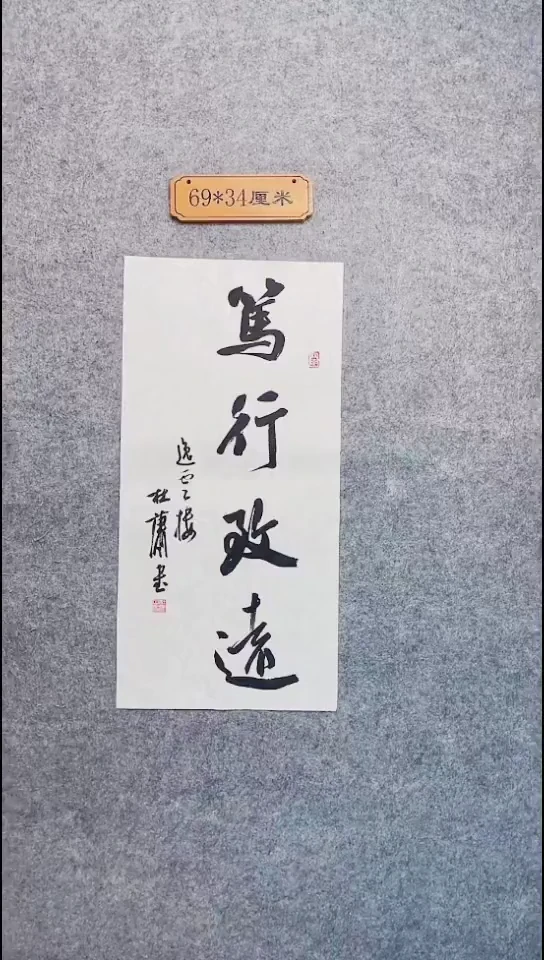 69*34厘米
篤行致遠
逸雲樓
杜蕭書